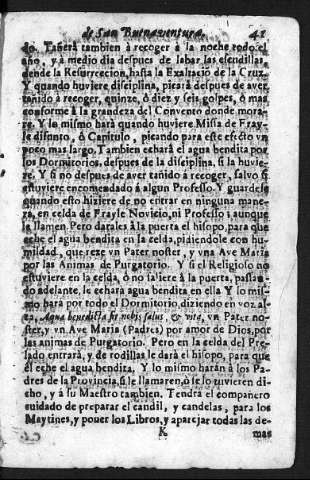 de San Buenaventura. 41
do. Tañerà tambien à recoger à la noche todo el
año, y à medio dia despues de labar las escudillas,
dende la Resurreccion, hasta la Exaltació de la Cruz.
Y quando huviere disciplina, picarà despues de aver
tañido à recoger, quinze, ò diez y seis golpes, ò mas
conforme à la grandeza del Convento donde mora-
re. Y lo mismo harà quando huviere Missa de Fray-
le difunto, ò Capitulo, picando para este efecto vn
poco mas largo, Tambien echarà el agua bendita por
los Dormitorios, despues de la disciplina, si la huvie-
re, Y si no despues de aver tañido à recoger, salvo si
estuviere encomendado à algun Professo. Y guardese
quando esto hiziere de no entrar en ninguna mane-
ra, en celda de Frayle Novicio, ni Professo; aunque
le llamen. Pero darales à la puerta el hisopo, para que
eche el agua bendita en la celda, pidiendole con hu-
mildad, que reze vn Pater noster, y vna Ave Maria
por las Animas de Purgatorio. Y si el Religioso no
estuviere en la celda, ò no saliere à la puerta, passan-
do adelante, le echarà agua bendita en ella Y lo mis-
mo harà por todo el Dormitorio, diziendo en voz al-
ta, Aqua benedicta sit nobis salus, & vita, vn Pater no-
ster, y vn Ave Maria (Padres) por amor de Dios, por
las animas de Purgatorio. Pero en la celda del Pre-
lado entrarà, y de rodillas le darà el hisopo, para que
èl eche el agua bendita, Y lo mismo haràn à los Pa-
dres de la Provincia, si le llamaren, ò se lo tuvieren di-
cho, y à su Maestro tambien. Tendrà el compañero
cuidado de preparar el candil, y candelas, para los
Maytines, y poner los Libros, y aparejar todas las de-
K mas